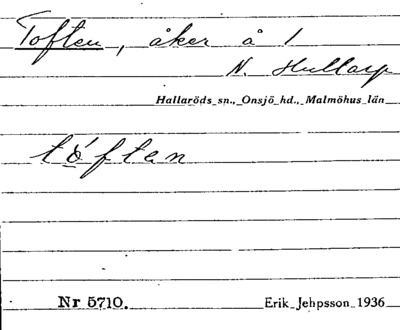 Toften, åker å 1
N. Hultarp
Hallaröds sn., Onsjö hd., Malmöhus län
tóften
Nr 5710.
Erik Jehpsson 1936